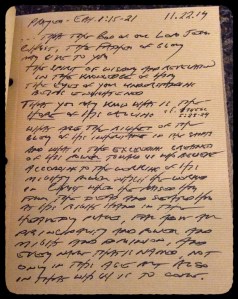 Prayer - EPH 1:15-21 11.22.14
... THAT THE GOD OF OUR LORD JESUS
CHRIST, THE FATHER OF GLORY
MAY GIVE TO YOU
THE SPIRIT OF WISDOM AND REVELATION
IN THE KNOWLEDGE OF HIM
THE EYES OF YOUR UNDERSTANDING
BEING ENLIGHTENED
THAT YOU MAY KNOW WHAT IS THE
HOPE OF HIS CALLING
WHAT ARE THE RICHES OF THE
GLORY OF HIS INHERITANCE IN THE SAINTS
AND WHAT IS THE EXCEEDING GREATNESS
OF HIS POWER TOWARD US WHO BELIEVE
ACCORDING TO THE WORKING OF HIS
MIGHTY POWER WHICH HE WORKED
IN CHRIST WHEN HE RAISED HIM
FROM THE DEAD AND SEATED HIM
AT HIS RIGHT HAND IN THE
HEAVENLY PLACES, FAR ABOVE ALL
PRINCIPALITY AND POWER AND
MIGHT AND DOMINION, AND
EVERY NAME THAT IS NAMED NOT
ONLY IN THIS AGE BUT ALSO
IN THAT WHICH IS TO COME.